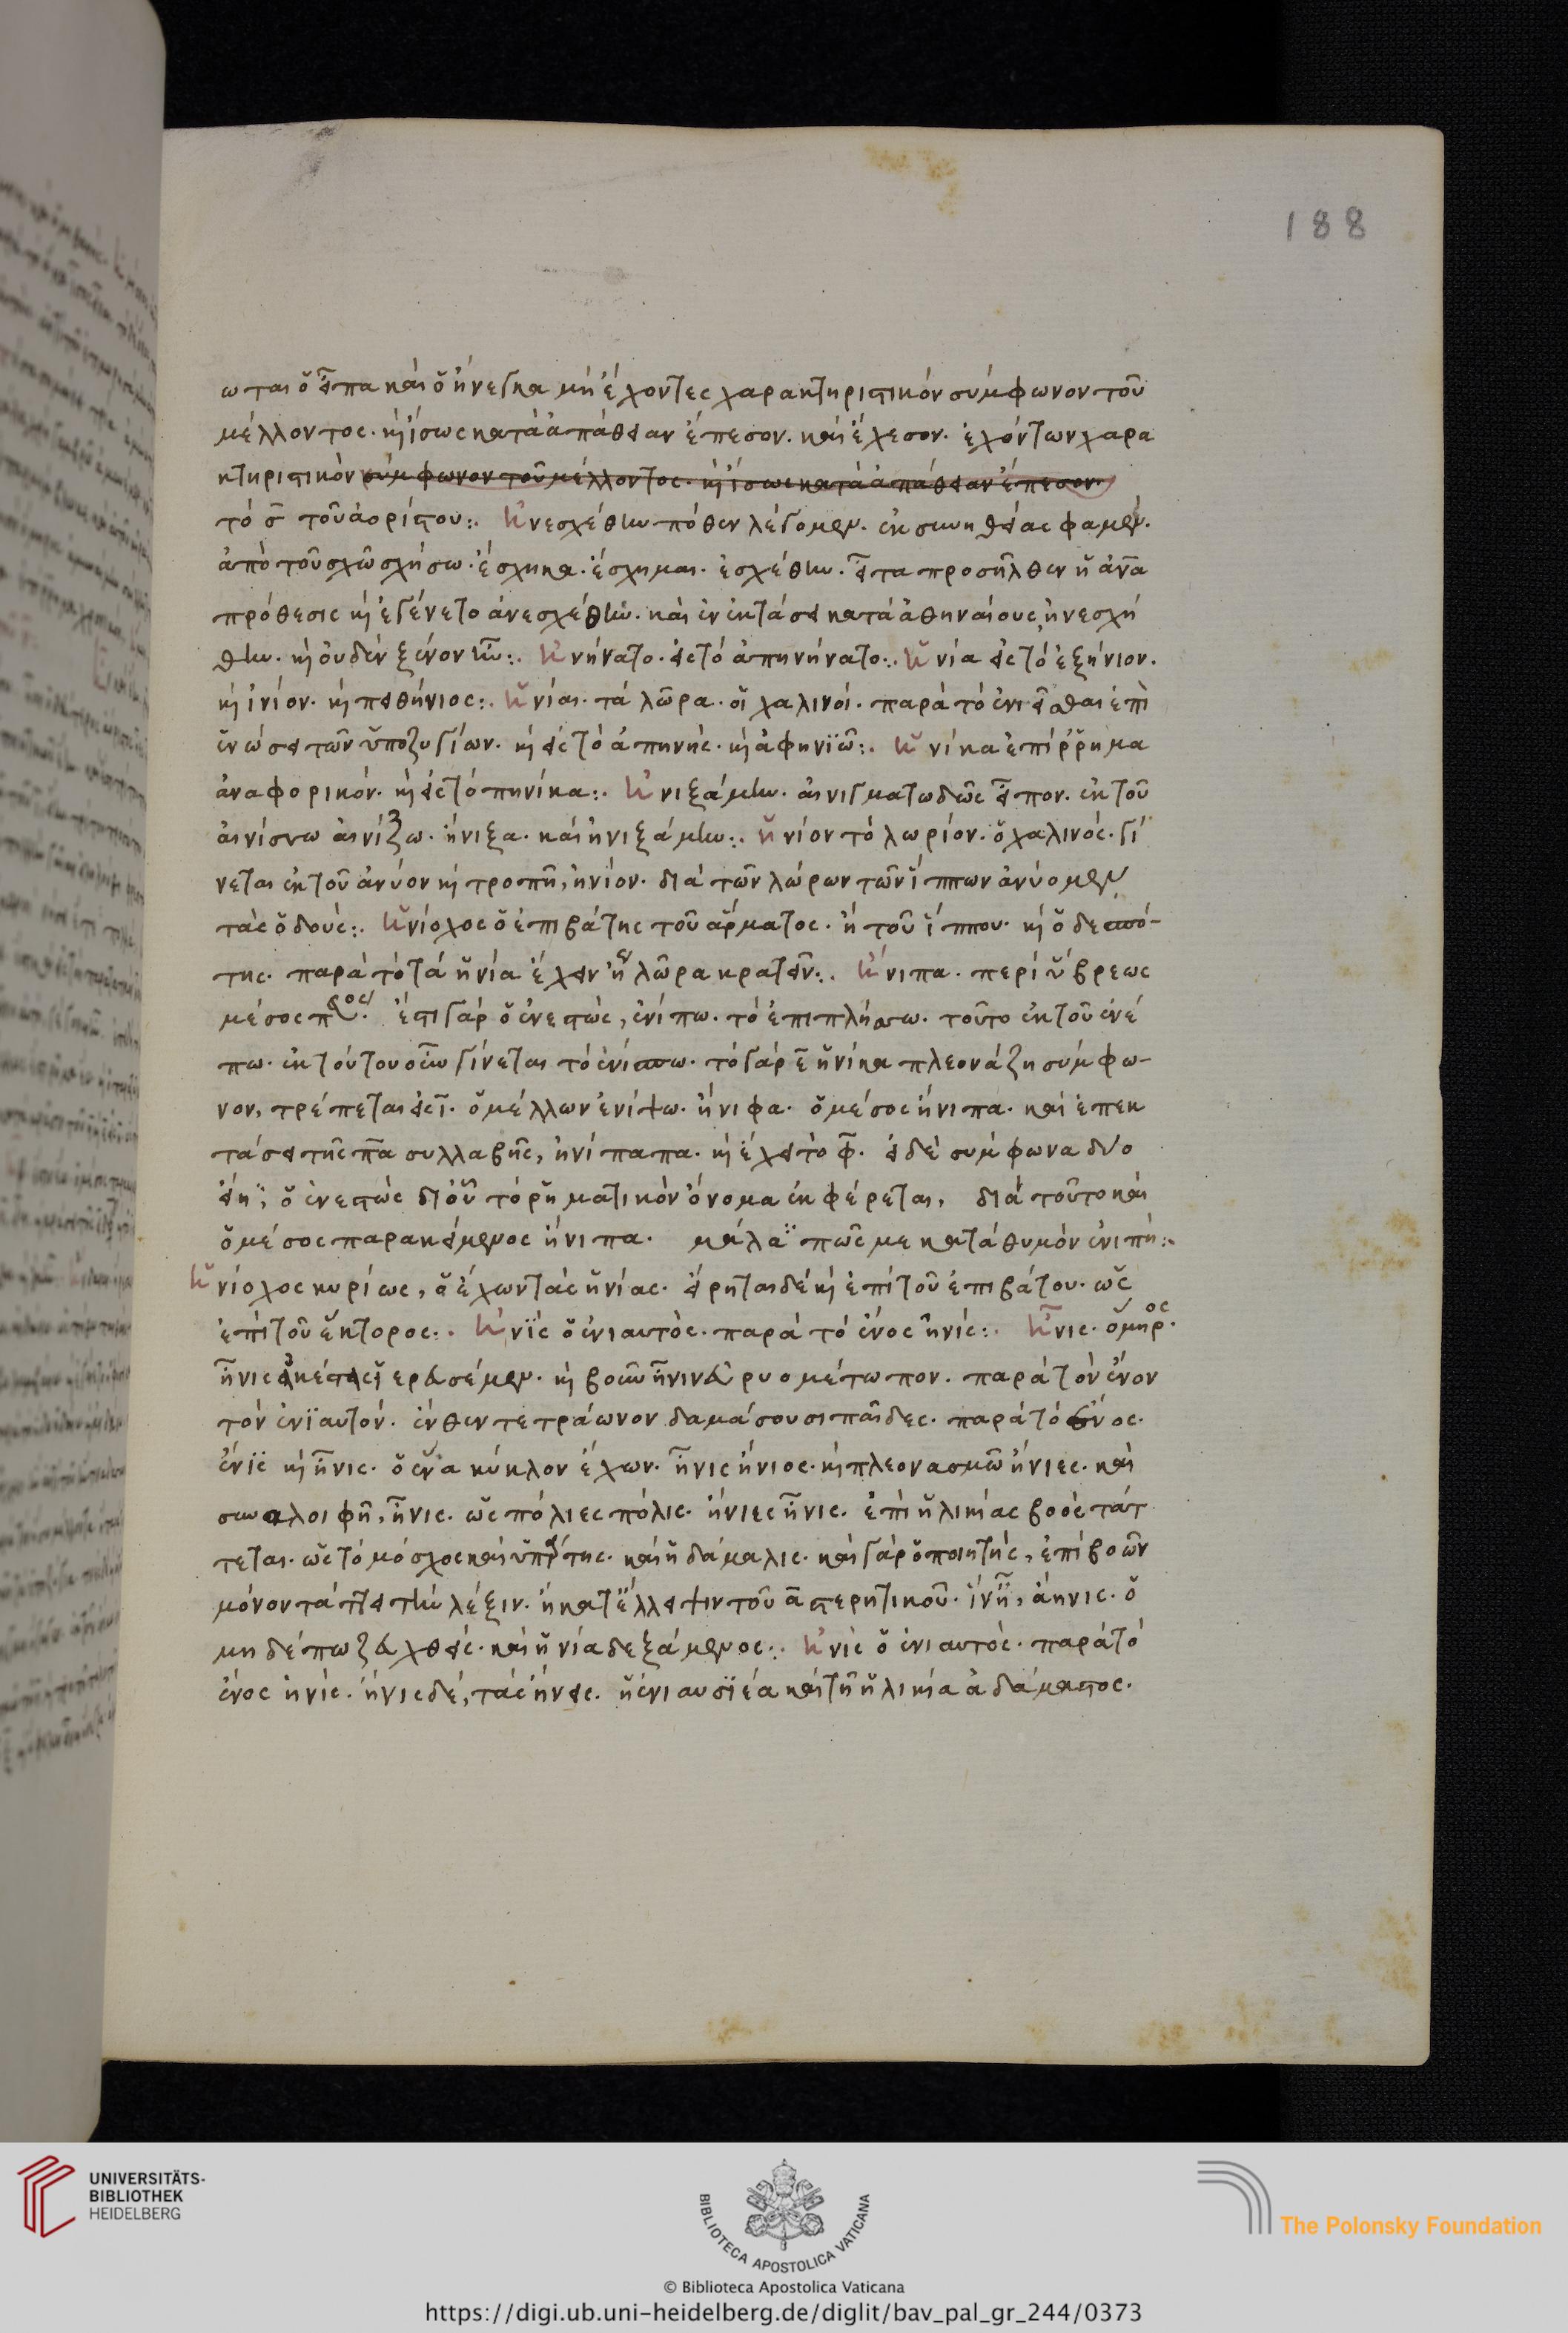 188
ωται ὁ εἶπα καὶ ὁ ἤνεγκα μὴ ἔχοντες χαρακτηριστικὸν σύμφωνον τοῦ
μέλλοντος. κ(αὶ) ἴσως κατὰ ἀπάθειαν ἔπεσον. καὶ ἔχεσον. ἐχόντων χαρα
κτηριστικὸν σύμφωνον τοῦ μέλλοντος. κ(αὶ) ἴσως κατὰ ἀπάθειαν ἔπεσον.
τό σ̄ τοῦ ἀορίστου:. ἠνεσχέθην πόθεν λέγομεν. ἐκ συνηθείας φαμέν.
ἀπὸ τοῦ σχῶ σχήσω. ἔσχηκα. ἔσχημαι. ἐσχέθην. εἶτα προσῆλθεν ἡ ἀνα
πρόθεσις κ(αὶ) ἐγένετο ἀνεσχέθην. καὶ ἐν ἐκτάσει κατὰ ἀθηναίους, ἠνεσχή
θην. κ(αὶ) οὐδὲν ξένον ἦν:. ἠνήνατο. εἰς τὸ ἀπηνήνατο:. ἡνία εἰς τὸ ἐξήνιον.
κ(αὶ) ἰνίον. κ(αὶ) πειθήνιος:. ἡνίαι. τὰ λῶρα. οἱ χαλινοί. παρὰ τὸ ἐνιεῖσθαι ἐπὶ
ἑνώσει τῶν ὑποζυγίων. κ(αὶ) εἰς τὸ ἀπηνής. κ(αὶ) ἀφηνϊῶ:. ἡνίκα ἐπίρρημα
ἀναφορικόν. κ(αὶ) εἰς τὸ πηνίκα:. ἠνιξάμην. αἰνιγματωδῶς εἶπον. ἐκ τοῦ
αἰνίσσω αἰνίζω. ἤνιξα. καὶ ἠνιξάμην:. ἡνίον τὸ λωρίον. ὁ χαλινός. γί
νεται ἐκ τοῦ ἀνύον κ(αὶ) τροπῆ, ἡνίον. διὰ τῶν λώρων τῶν ἵππων ἀνύομεν
τὰς ὁδούς:. ἡνίοχος ὁ ἐπιβάτης τοῦ ἅρματος. ἢ τοῦ ἵππου. κ(αὶ) ὁ δεσπό-
της. παρὰ τὸ τὰ ἡνία ἔχειν ἢ λῶρα κρατεῖν:. ἤνιπα. περὶ ὕβρεως
μέσος π. ἔστι γὰρ ὁ ἐνεστὼς, ἐνίπω. τὸ ἐπιπλήσσω. τοῦτο ἐκ τοῦ ἐνέ
πω. ἐκ τούτου οὖν γίνεται τὸ ἐνίσπω. τὸ γὰρ ε̄ ἡνίκα πλεονάζη σύμφω-
νον, τρέπεται εἰς ῑ. ὁ μέλλων ἐνίψω. ἤνιφα. ὁ μέσος ἤνιπα. καὶ ἐπεκ
τάσει τῆς πᾱ συλλαβῆς, ἠνίπαπα. κ(αὶ) ἔχει τὸ φ̄. εἰ δὲ σύμφωνα δύο
εἴη, ὁ ἐνεστὼς δι οὗ τὸ ῥηματικὸν ὄνομα ἐκφέρεται, διὰ τοῦτο καὶ
ὁ μέσος παρακείμενος ἤνιπα. μάλα πῶς με κατὰ θυμὸν ἐνιπή:.
ἡνίοχος κυρίως, ὁ ἔχων τὰς ἡνίας. εἴρηται δὲ κ(αὶ) ἐπὶ τοῦ ἐπιβάτου. ὡς
ἐπὶ τοῦ ἕκτορος:. ἠνϊς ὁ ἐνιαυτὸς. παρὰ τὸ ἕνος ἡνίς:. ἦνις. ὅμηρος.
ἦνις ἠκέστας ἱερευσέμεν. κ(αὶ) βοῦν ἦνιν εὐρυομέτωπον. παρὰ τὸν ἕνον
τὸν ἐνϊαυτόν. ἔνθεν τετράωνον δαμάσουσι παῖδες. παρὰ τὸ ἕνος.
ἔνϊς κ(αὶ) ἦνις. ὁ ἕνα κύκλον ἔχων. ἦνις ἤνιος. κ(αὶ) πλεονασμῶ ἤνιες. καὶ
συναλοιφῆ, ἦνις. ὡς πόλιες πόλις. ἤνιες ἦνις. ἐπὶ ἡλικίας βοὸς τάτ
τεται. ὡς τὸ μόσχος καὶ ὑπείτης. καὶ ἡ δάμαλις. καὶ γὰρ ὁ ποιητὴς, ἐπὶ βοῶν
μόνον τάττει τὴν λέξιν. ἢ κατ' ἔλλειψιν τοῦ ᾱ στερητικοῦ. ἵν' ἦ, ἄηνις. ὁ
μηδέπω ζευχθείς. καὶ ἡνία δεξάμενος:. ἠνὶς ὁ ἐνιαυτὸς. παρὰ τὸ
ἕνος ἡνίς. ἤνις δὲ, τὰς ἤνεις. ἡ ἐνιαυσϊέα καὶ τῆ ἡλικία ἀδάμαστος.
UNIVERSITÄTS-
BIBLIOTHEK
HEIDELBERG
BIBLIOTECA APOSTOLICA VATICANA
The Polonsky Foundation
© Biblioteca Apostolica Vaticana
https://digi.ub.uni-heidelberg.de/diglit/bav_pal_gr_244/0373